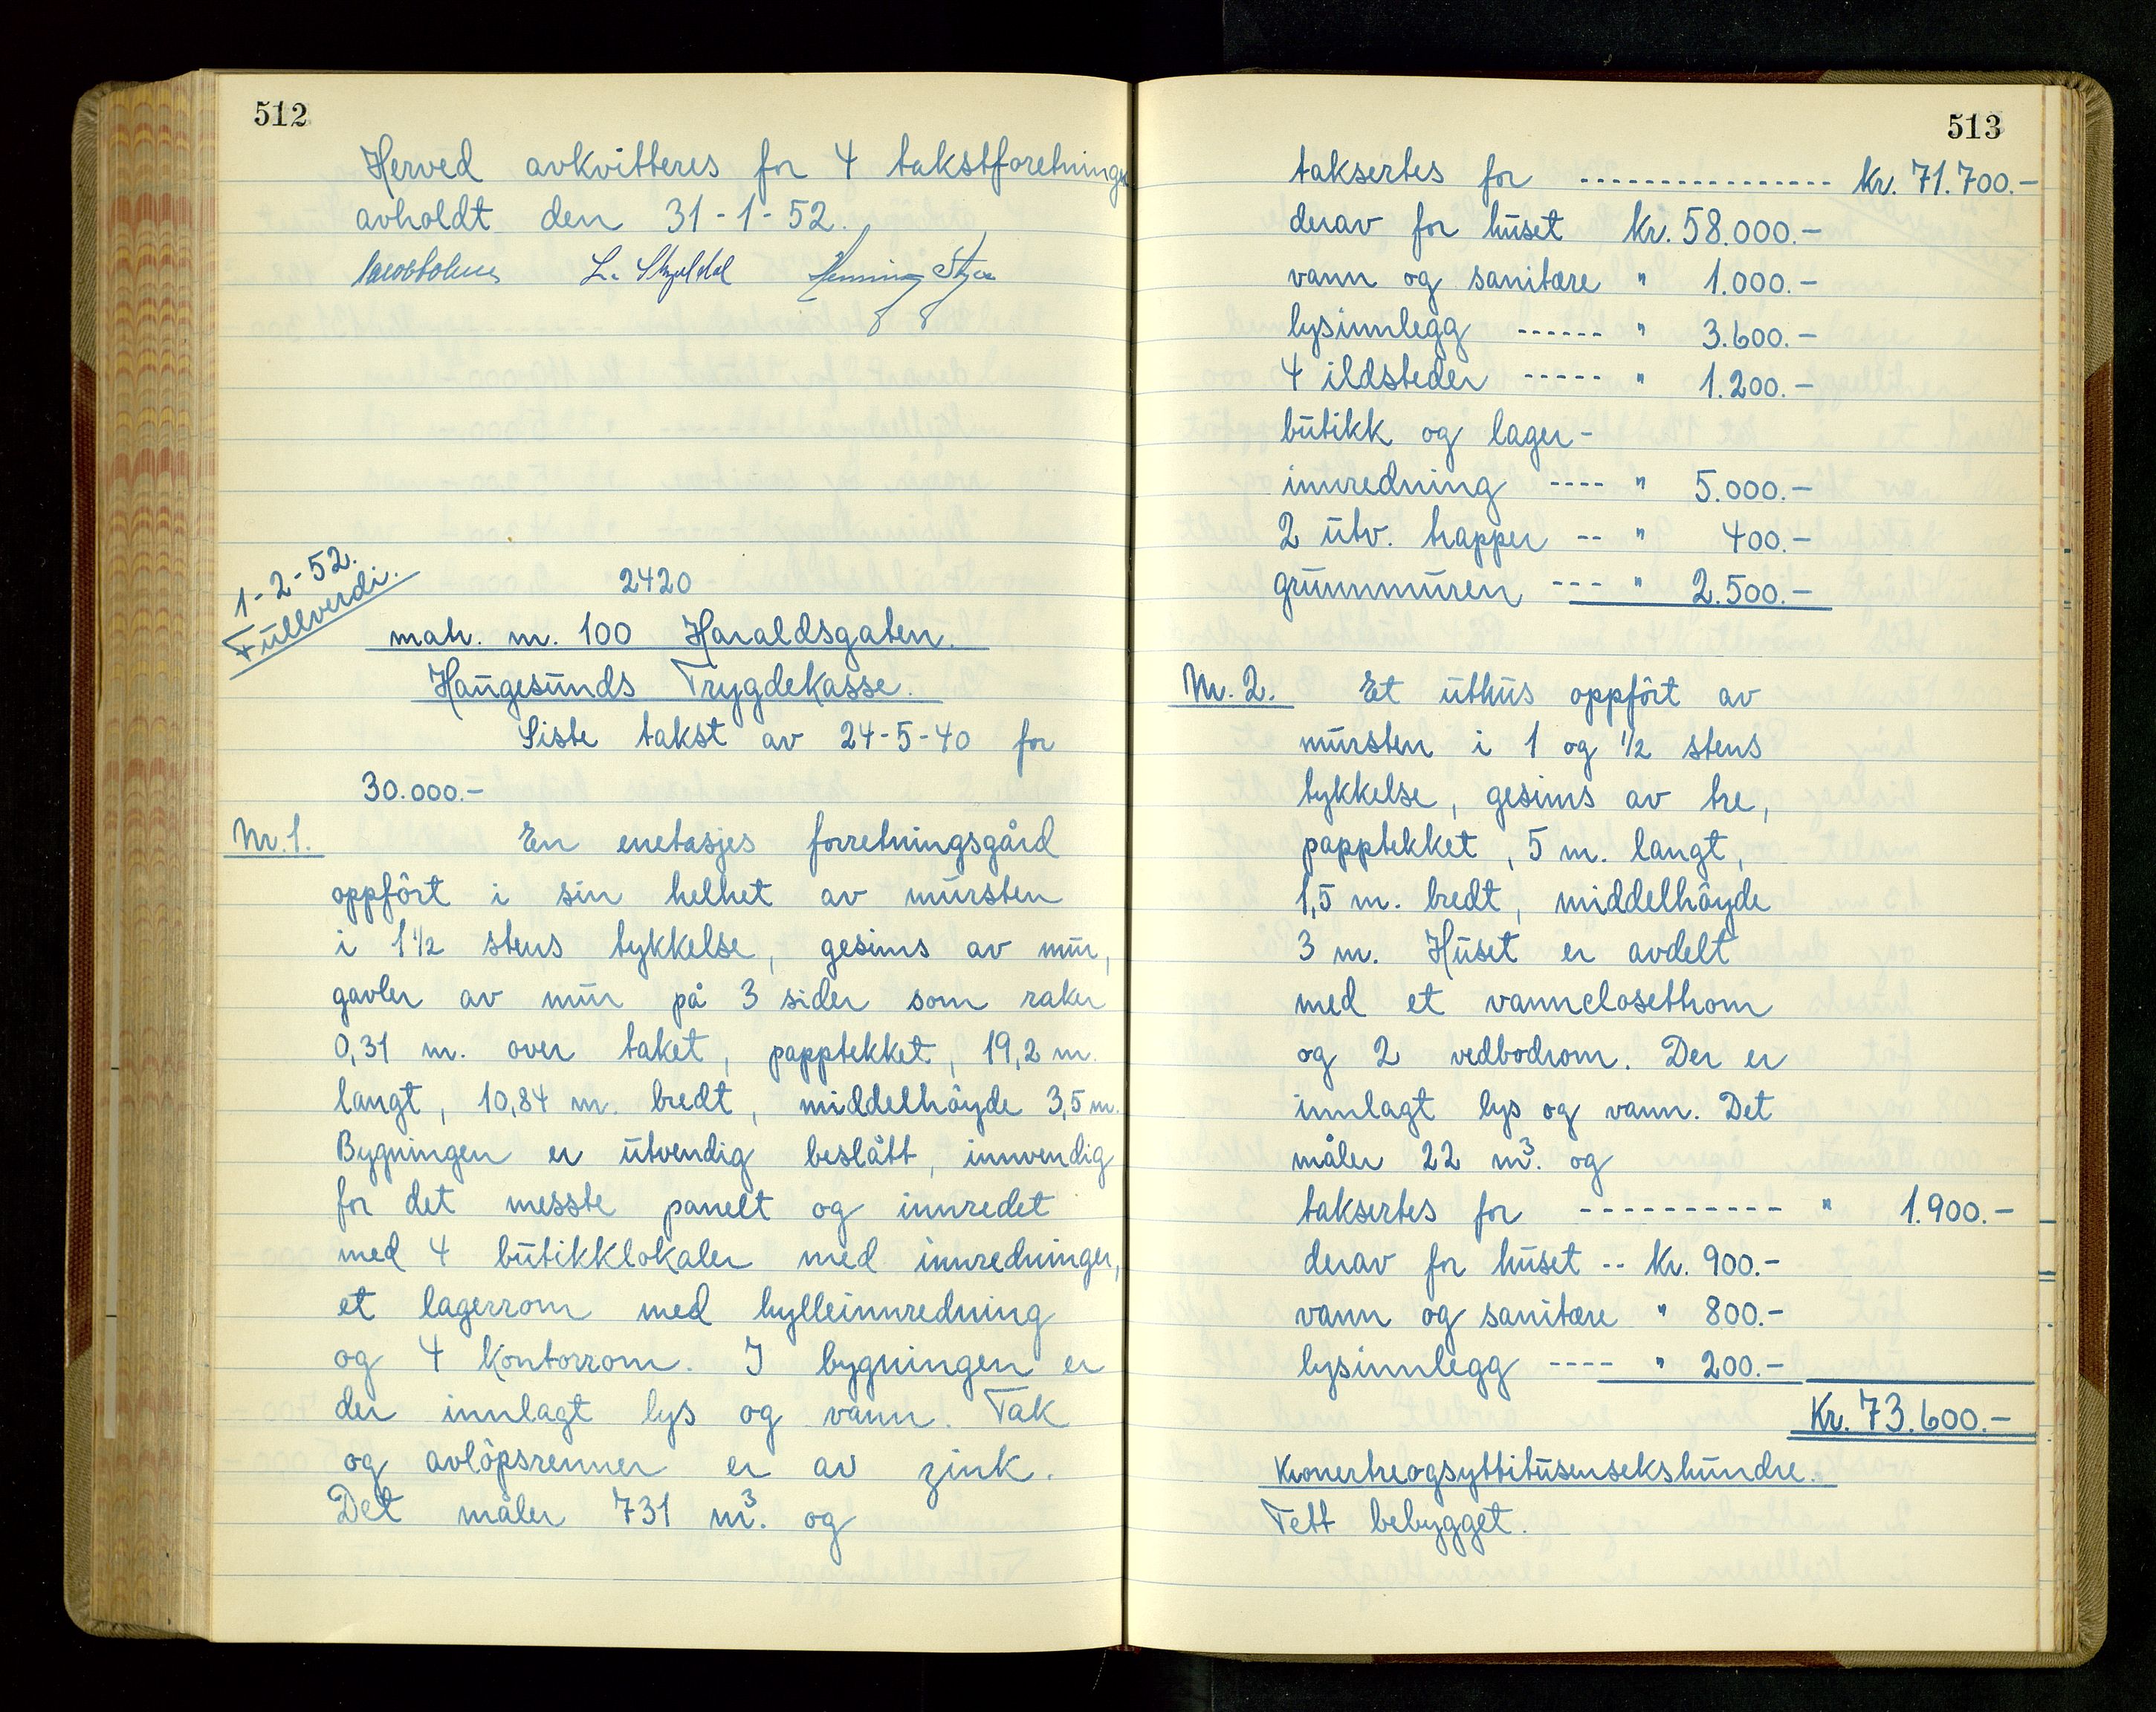 512
Herved avkvitteres for 4 takstforetninger
avholdt den 31-1-52.
1-2-52.
Fullverdi.
2420
matr. nr. 100 Haraldsgaten.
Haugesunds Trygdekasse.
Siste takst av 24-5-40 for
30.000.-
Nr. 1. En enetasjes forretningsgård
oppført i sin helhet av mursten
i 1 1/2 stens tykkelse, gesims av mur,
gavler av mur på 3 sider som raker
0,31 m. over taket, papptekket, 19,2 m.
langt, 10,84 m. bredt, middelhøyde 3,5 m.
Bygningen er utvendig beslått, innvendig
for det messte panelt og innredet
med 4 butikklokaler med innredninger,
et lagerrom med hylleinnredning
og 4 kontorrom. I bygningen er
der innlagt lys og vann. Tak
og avløpsrenner er av zink.
Det måler 731 m³. og
513
taksertes for ---------------- kr. 71.700.-
derav for huset kr. 58.000.-
vann og sanitære " 1.000.-
lysinnlegg ------ " 3.600.-
4 ildsteder ----- " 1.200.-
butikk og lager-
innredning ---- " 5.000.-
2 utv. trapper -- " 400.-
grunnmuren --- " 2.500.-
Nr. 2. Et uthus oppført av
mursten i 1 og 1/2 stens
tykkelse, gesims av tre,
papptekket, 5 m. langt,
1,5 m. bredt, middelhøyde
3 m. Huset er avdelt
med et vannclosettrom
og 2 vedbodrom. Der er
innlagt lys og vann. Det
måler 22 m³. og
taksertes for ---------- " 1.900.-
derav for huset -- kr. 900.-
vann og sanitære " 800.-
lysinnlegg ---- " 200.-
Kr. 73.600.-
Kronertreogsyttitusensekshundre.
Tett bebygget.